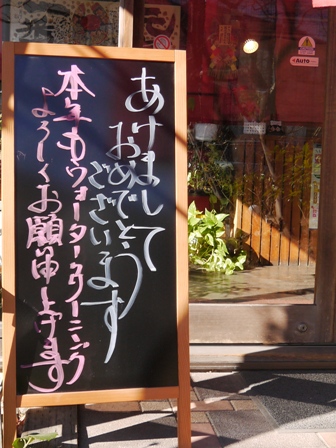 あけまして
おめでとう
ございます
本年もウォータータイニング
よろしくお願い申し上げます
AUTO